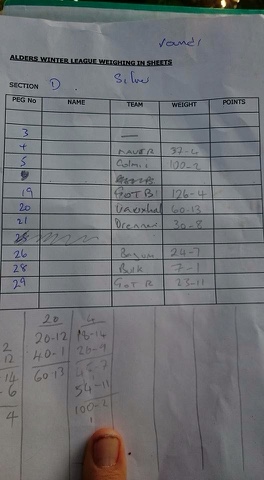 round 1
ALDERS WINTER LEAGUE WEIGHING IN SHEETS
SECTION D. Silver
PEG No NAME TEAM WEIGHT POINTS
3 —
4 MAVER 32-2
5 Colmic 100-2
19 GOT B 126-4
20 Vauxhall 60-13
21 Drennan 30-8
25
26 24-7
28 Bulk 7-1
29 GOT R 23-11
20 6
2 20-12 18-14
12 40-1 26-9
14 60-13 45-7
6 54-11
4 100-2